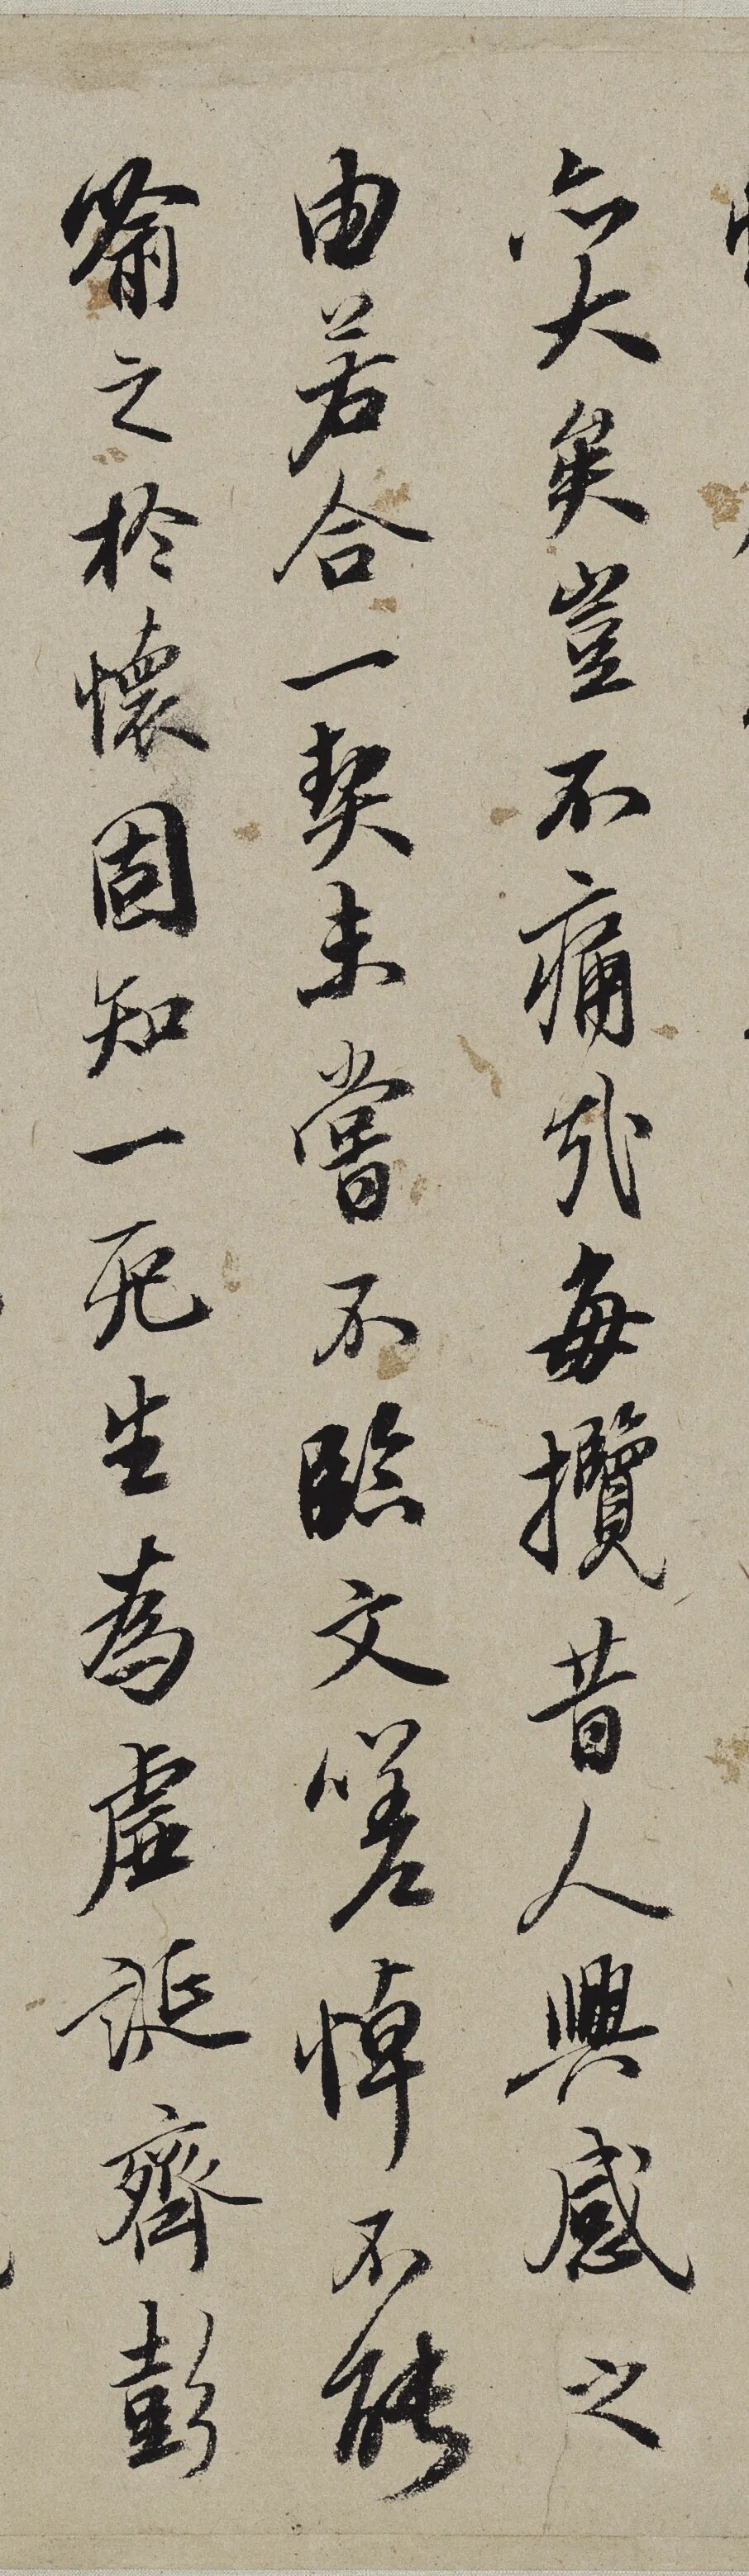 亦大矣豈不痛哉每攬昔人興感之
由若合一契未嘗不臨文嗟悼不能
喻之於懷固知一死生為虛誕齊彭